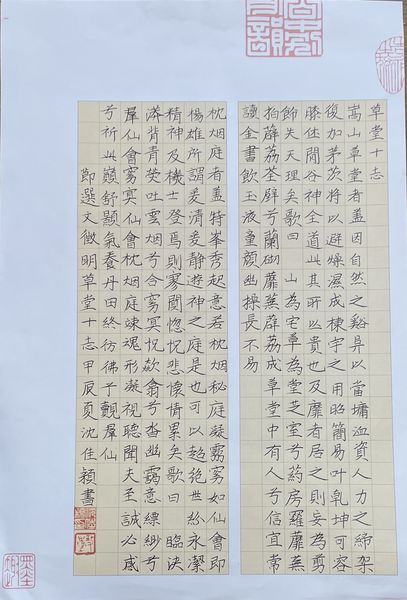 草堂十志
嵩山草堂者盖因自然之谿阜以當墉洫資人力之締架
後加茅茨將以避燥濕成棟宇之用昭簡易叶乾坤可容
膝休閒谷神全道此其所以貴也及靡者居之則妄為剪
飾失天理矣歌曰 山為宅草為堂芝室兮葯房羅蘼蕪
拍薜荔荃壁兮蘭砌蘼蕪薜荔成草堂中有人兮信宜常
讀金書飲玉液童顏幽操長不易
枕烟庭者盖特峯秀起意若枕烟秘庭凝霧窅如仙會即
楊雄所謂爰清爰靜遊神之庭是也可以超絕世紛永潔
精神及機士登焉則寥闃惚怳悲懷情累矣歌曰 臨泱
漭背青熒吐雲烟兮合窅冥怳欻翕兮沓幽靄意縹緲兮
羣仙會窅冥仙會枕烟庭竦魂形凝視聽聞夫至誠必感
兮祈此巔舒顥氣養丹田終彷彿予覿羣仙
節選文徵明草堂十志甲辰夏沈佳穎書